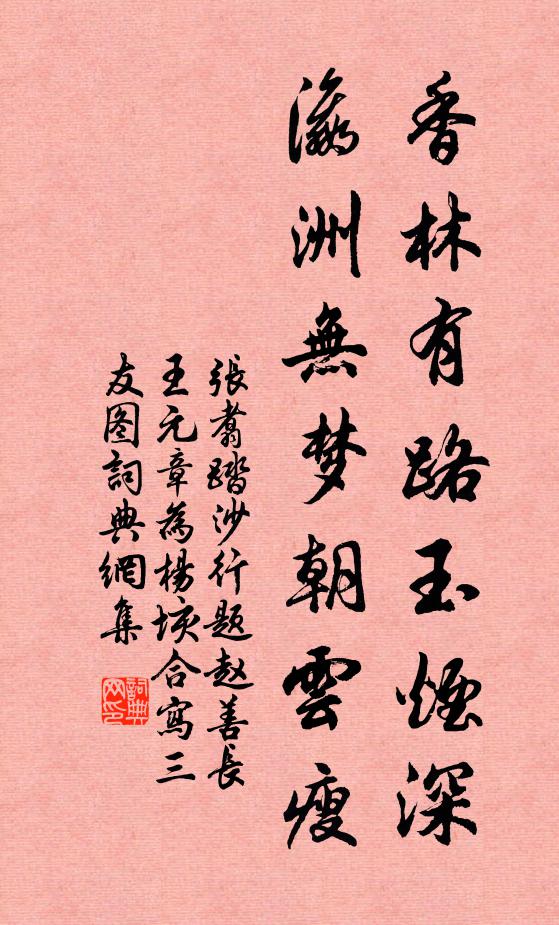 香林有路玉煙深
瀛洲無梦朝雲瘦
張翥踏沙行题赵善長
王元章為楊垓合寫三
友图詞典網集
詞典网印